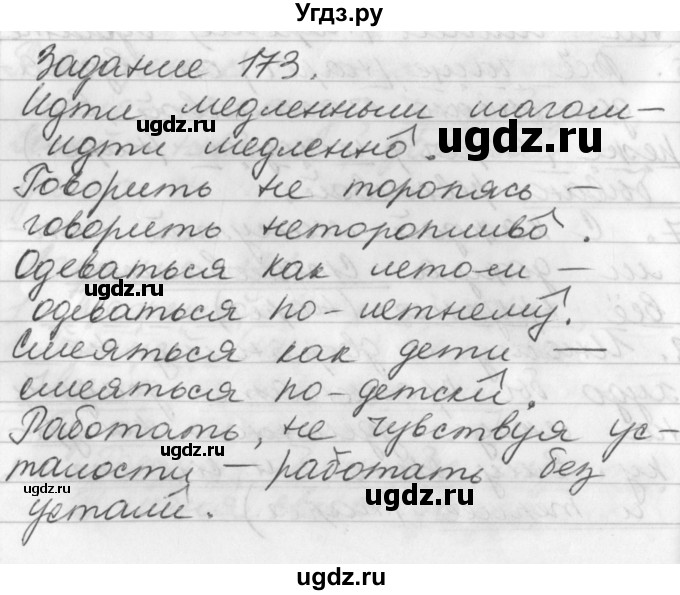 Угдз.ру
Задание 173.
Идти медленным шагом –
идти медленно.
Говорить не торопясь –
говорить неторопливо.
Одеваться как летом –
одеваться по-летнему.
Смеяться как дети –
смеяться по-детски.
Работать, не чувствуя ус-
талости – работать без
устали.
ugdz.ru
ugdz.ru
ugdz.ru
ugdz.ru
ugdz.ru
ugdz.ru
ugdz.ru